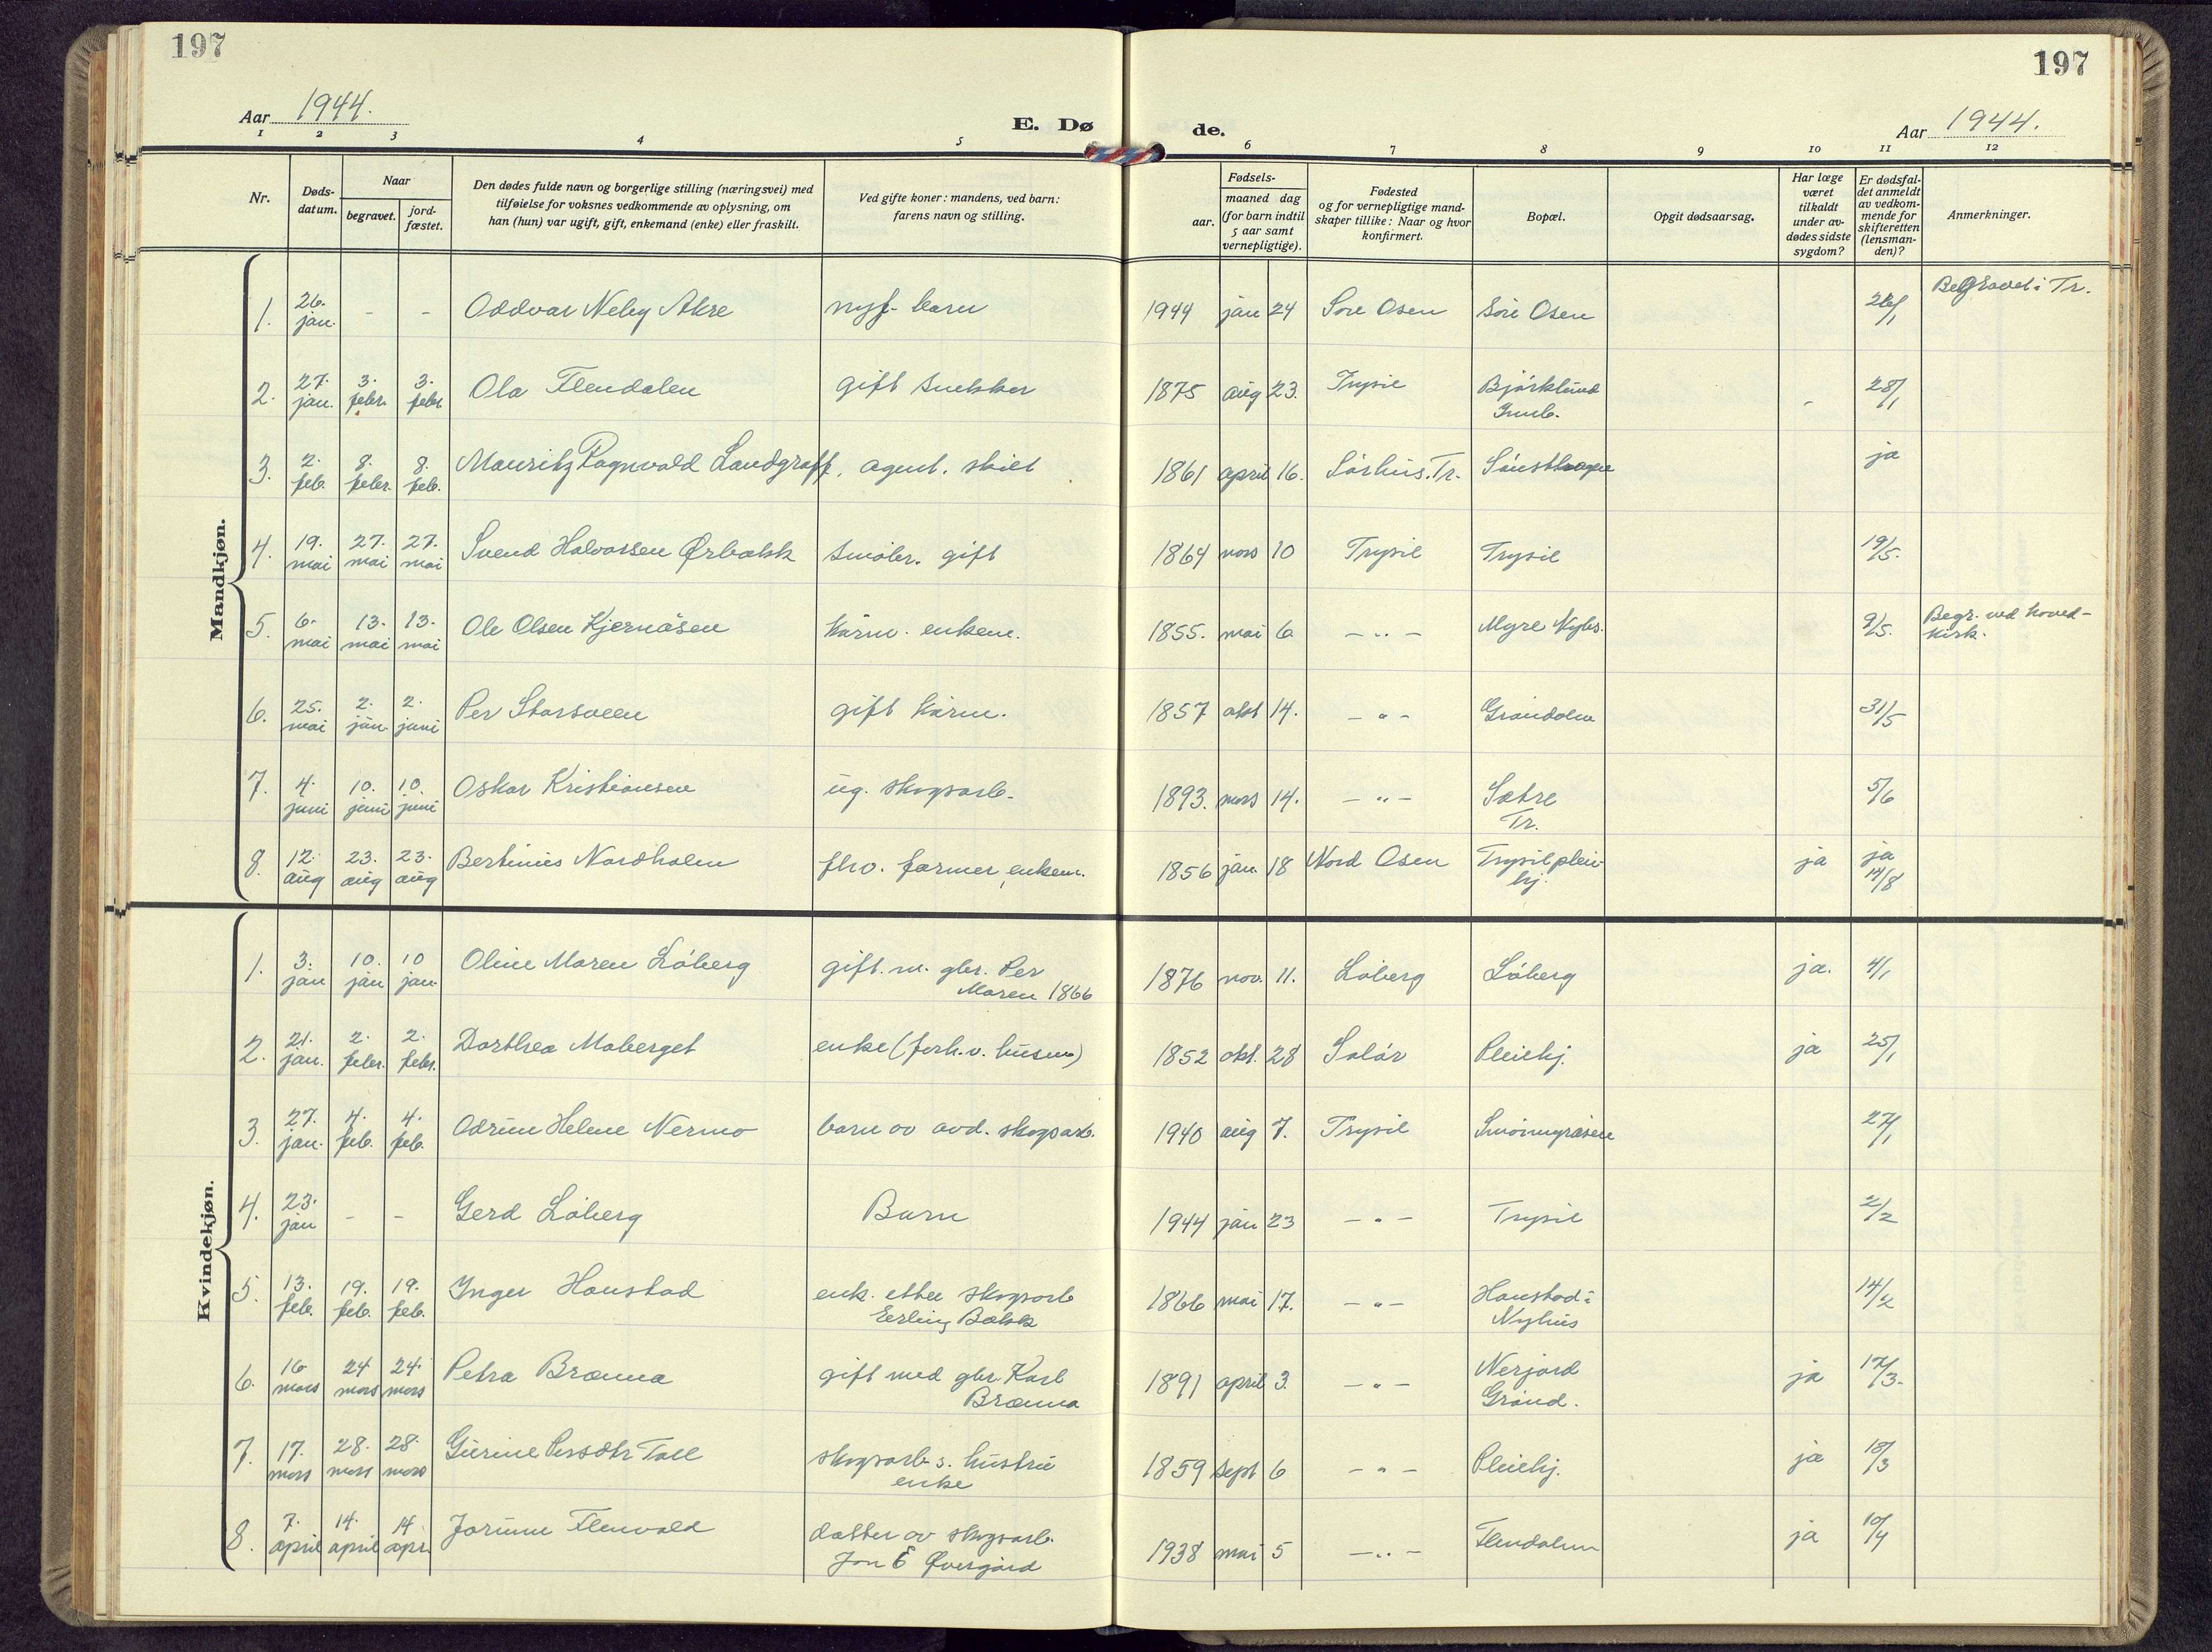 197
197
Aar 1944.
E. Dø
de.
Aar 1944.
1 2 3 4 5 6 7 8 9 10 11 12
Nr.
Døds-
datum.
Naar
begravet.
jord-
fæstet.
Den dødes fulde navn og borgerlige stilling (næringsvei) med
tilføielse for voksnes vedkommende av oplysning, om
han (hun) var ugift, gift, enkemand (enke) eller fraskilt.
Ved gifte koner: mandens, ved barn:
farens navn og stilling.
Fødsels-
aar.
maaned dag
(for barn indtil
5 aar samt
vernepligtige).
Fødested
og for vernepligtige mand-
skaper tillike: Naar og hvor
konfirmert.
Bopæl.
Opgit dødsaarsag.
Har læge
været
tilkaldt
under av-
dødes sidste
sygdom?
Er dødsfal-
det anmeldt
av vedkom-
mende for
skifteretten
(lensman-
den)?
Anmerkninger.
Mandkjøn.
1. 26. jan. - - Oddvar Neby Akre nyf. barn 1944 jan 24 Søre Osen Søre Osen 26/1 Begravet i Tr.
2. 27. jan. 3. febr. 3. febr. Ola Flendalen gift snekker 1875 aug 23. Trysil Bjørklund - 28/1
3. 2. feb. 8. febr. 8. feb. Mauritz Ragnvald Landgraff, agent. skilt 1861 april 16. Sørhus. Tr. ja
4. 19. mai 27. mai 27. mai Svend Halvorsen Ørbækk småbr. gift 1864 mars 10 Trysil Trysil 19/5.
5. 6. mai 13. mai 13. mai Ole Olsen Kjernåsen kårm. enkem. 1855. mai 6 - " - Myre Nybs. 9/5. Begr. ved hoved-
kirk.
6. 25. mai 2. jun. 2. juni Per Storsveen gift kårm. 1857 okt 14. - " - 31/5
7. 4. juni 10. juni 10. juni Oskar Kristiansen ug. skogsarb. 1893. mars 14. - " - Sætre
Tr. 5/6
8. 12. aug 23. aug 23. aug Bertinius Nordholm fhv. farmer, enkem. 1856 jan. 18 Nord Osen Trysil pleie-
hj. ja ja
14/8
Kvindekjøn.
1. 3. jan 10. jan 10 jan. Oline Maren Løberg gift. m. gbr. Per
Maren 1866 1876 nov. 11. Løberg Løberg ja. 4/1
2. 21. jan. 2. febr. 2. febr. Dorthea Moberget enke (forh. v. husm) 1852 okt. 28 Solør Pleiehj. ja 25/1
3. 27. jan. 4. feb. 4. feb. Odrun Helene Nermo barn av avd. skogsarb. 1940 aug 7. Trysil 27/1
4. 23. jan - - Gerd Løberg Barn 1944 jan 23 - " - Trysil 2/2
5. 13. feb. 19. feb. 19. feb. Inger Haustad enk. etter skogsarb
Erling Bækk 1866 mai 17. - " - Haustad i
Nyhus 14/2
6. 16 mars 24 mars 24. mars Petra Brænna gift med gbr. Karl
Brænna 1891 april 3. - " - Nerjord
Grønd. ja 17/3.
7. 17. mars 28. mars 28. mars Gurine Persdtr Tall skogsarb. s. hustru
enke 1859 sept 6 - " - Pleiehj. ja 18/3
8. 7. april 14. april 14 apr. Jorunn Flenvold datter av skogsarb.
Jon E Øvergård 1938 mai 5 - " - Flendalen ja 10/4